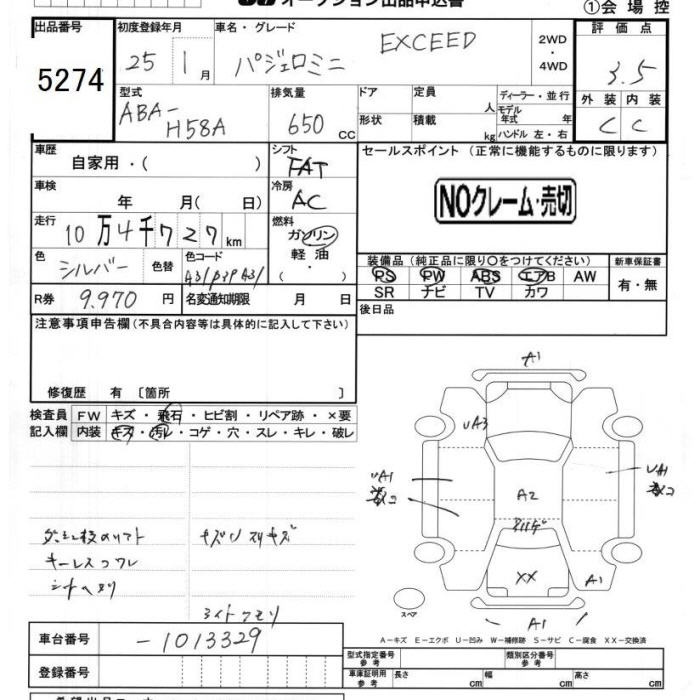 オークション出品申込書
①会場控
出品番号
5274
初度登録年月
25 1月
車名・グレード
パジェロミニ EXCEED
2WD・4WD
評価点
3.5
型式
ABA-H58A
排気量
650 CC
ドア
定員
人
ディーラー・並行
モデル年式 年
形状
積載
kg
ハンドル 左・右
外装 内装
C C
車歴
自家用・( )
シフト
FAT
セールスポイント (正常に機能するものに限ります)
NOクレーム・売切
車検
年 月( 日)
冷房
AC
走行
10万4千727km
燃料
ガソリン
軽油
( ・ )
色
シルバー
色替
色コード
A31
装備品(純正品に限り○をつけてください)
新車保証書
PS PW ABS エアB AW
SR ナビ TV カワ
有・無
R券
9.970円
名変通知期限 月 日
後日品
注意事項申告欄(不具合内容等は具体的に記入して下さい)
修復歴 有 〔箇所 〕
検査員記入欄
FW キズ・飛石・ヒビ割・リペア跡・×要
内装 キズ・汚レ・コゲ・穴・スレ・キレ・破レ
A1
A3
A1
A1
A2
XX
A1
A1
キーレスコワレ
シートヘタリ
ライトクモリ
スペア
A-キズ E-エクボ U-凹み W-補修跡 S-サビ C-腐食 XX-交換済
車台番号
-1013329
型式指定番号 参考
類別区分番号 参考
登録番号
車庫証明用 参考
長さ cm
幅 cm
高さ cm